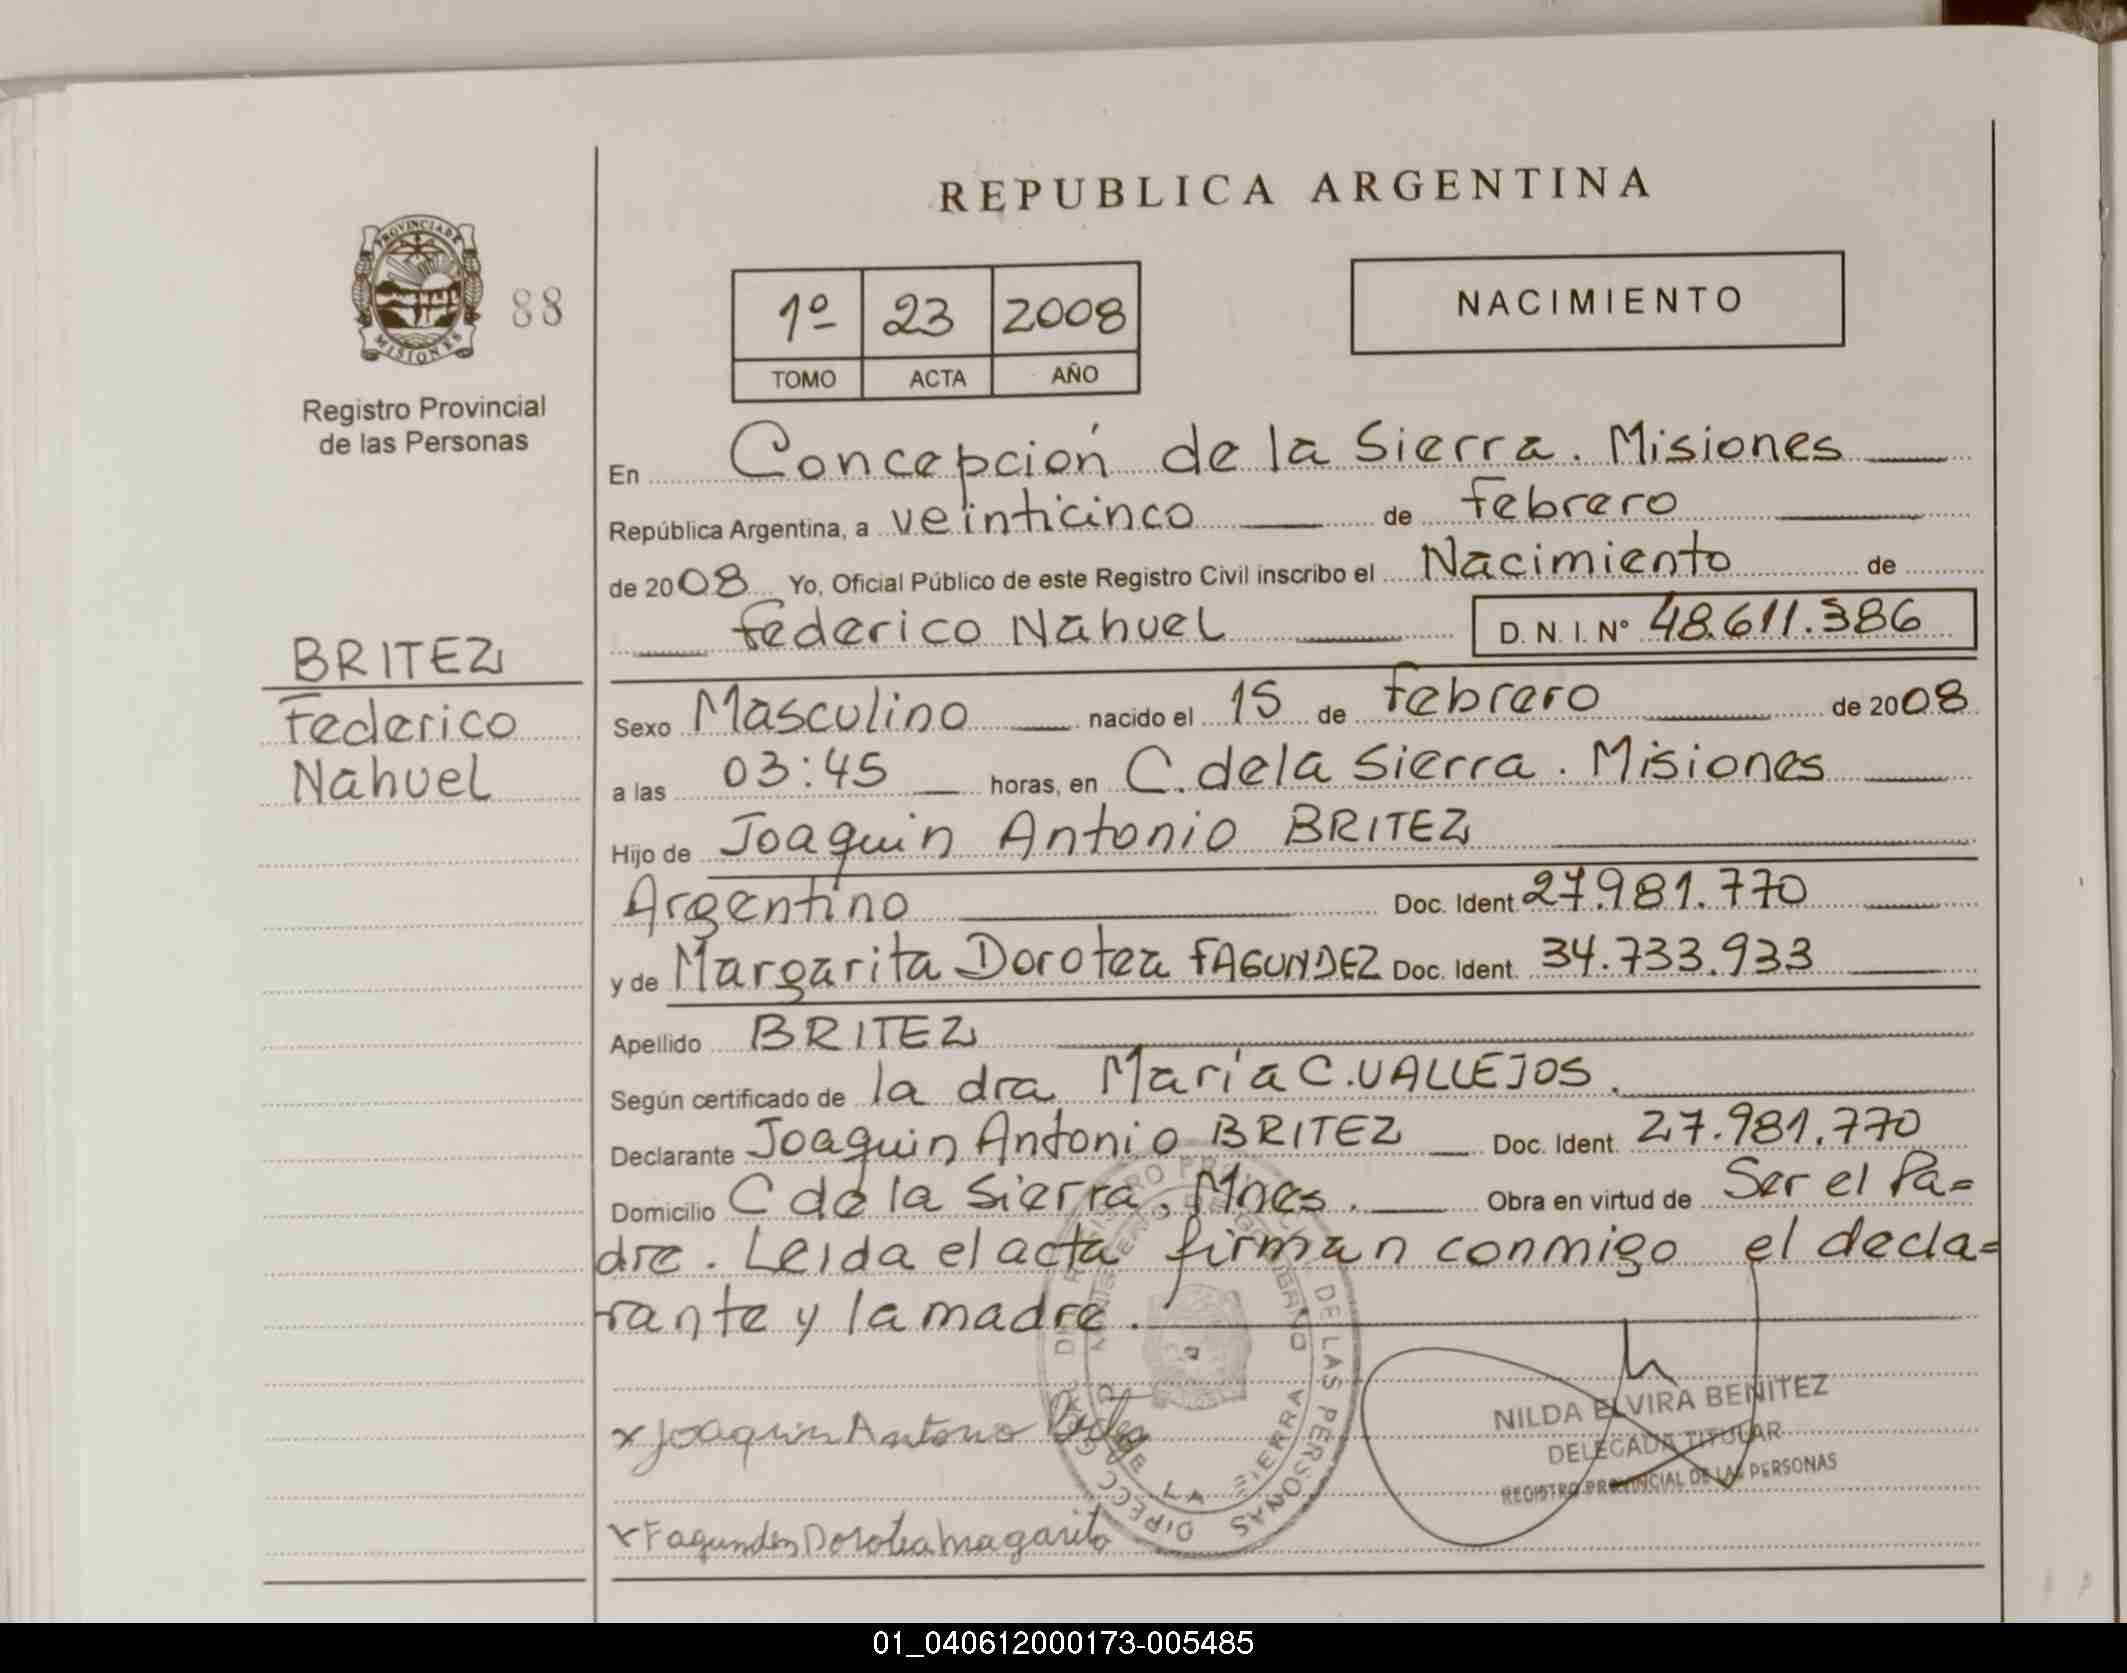 REPUBLICA ARGENTINA
PROVINCIA DE
MISIONES
88
Registro Provincial
de las Personas
1º 23 2008
TOMO ACTA AÑO
NACIMIENTO
En Concepción de la Sierra. Misiones
República Argentina, a veinticinco de febrero
de 2008 Yo, Oficial Público de este Registro Civil inscribo el Nacimiento de
Federico Nahuel D. N. I. Nº 48.611.386
BRITEZ
Federico
Nahuel
Sexo Masculino nacido el 15 de febrero de 2008
a las 03:45 horas, en C. de la Sierra. Misiones
Hijo de Joaquin Antonio BRITEZ
Argentino Doc. Ident. 27.981.770
y de Margarita Dorotea FAGUNDEZ Doc. Ident. 34.733.933
Apellido BRITEZ
Según certificado de la dra María C. VALLEJOS.
Declarante Joaquin Antonio BRITEZ Doc. Ident. 27.981.770
Domicilio C de la Sierra. Mnes. Obra en virtud de Ser el Pa=
dre. Leida el acta firman conmigo el decla=
rante y la madre.
x Joaquin Antonio
x Fagundez Dorotea Magarita
REGISTRO PROVINCIAL DE LAS PERSONAS
MINISTERIO DE GOBIERNO
DE LA SIERRA
NILDA ELVIRA BENITEZ
DELEGADA TITULAR
REGISTRO PROVINCIAL DE LAS PERSONAS
01_040612000173-005485